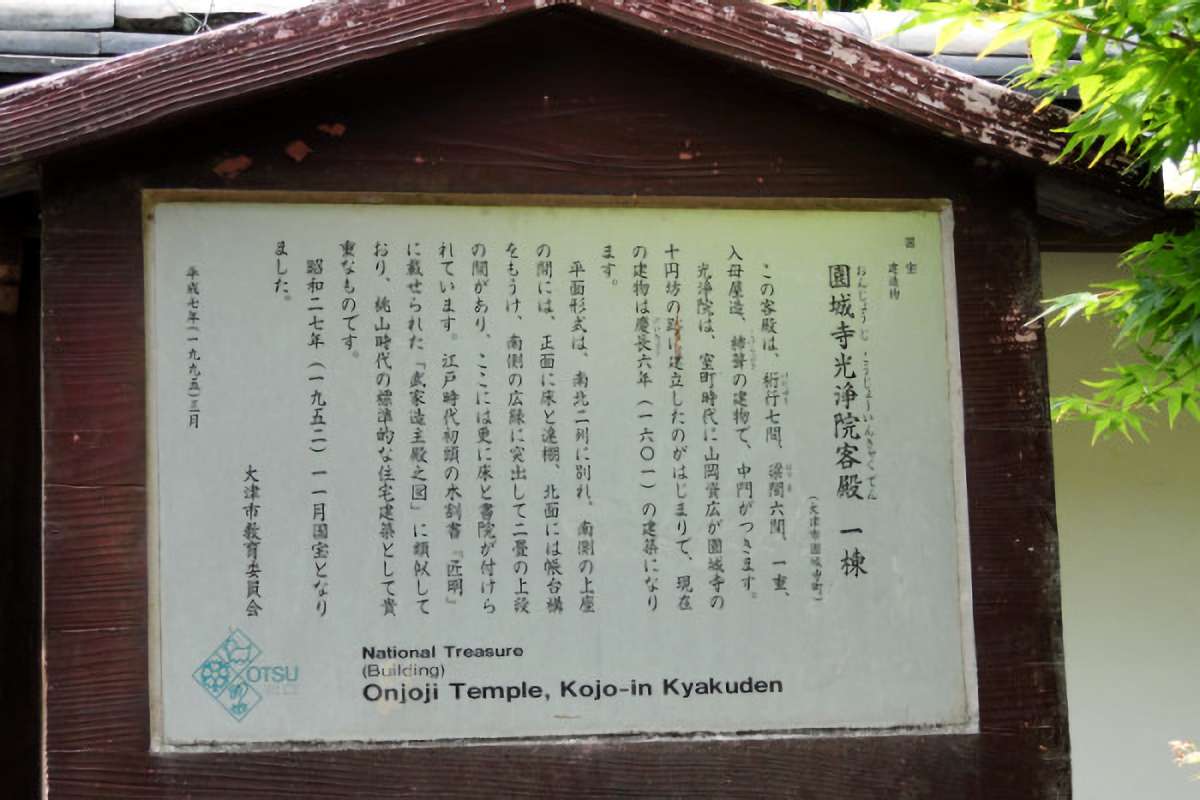 国宝 建造物
おんじょうじ こうじょういんきゃくでん
園城寺光浄院客殿 一棟
(大津市園城寺町)
この客殿は、桁行七間、梁間六間、一重、
入母屋造、杮葺の建物で、中門がつきます。
光浄院は、室町時代に山岡資広が園城寺の
十円坊の跡に建立したのがはじまりで、現在
の建物は慶長六年(一六〇一)の建築になり
ます。
平面形式は、南北二列に別れ、南側の上座
の間には、正面に床と違棚、北面には帳台構
をもうけ、南側の広縁に突出して二畳の上段
の間があり、ここには更に床と書院が付けら
れています。江戸時代初頭の木割書『匠明』
に載せられた『武家造主殿之図』に類似して
おり、桃山時代の標準的な住宅建築として貴
重なものです。
昭和二七年(一九五二)一一月国宝となり
ました。
大津市教育委員会
平成七年(一九九五)三月
OTSU
National Treasure
(Building)
Onjoji Temple, Kojo-in Kyakuden